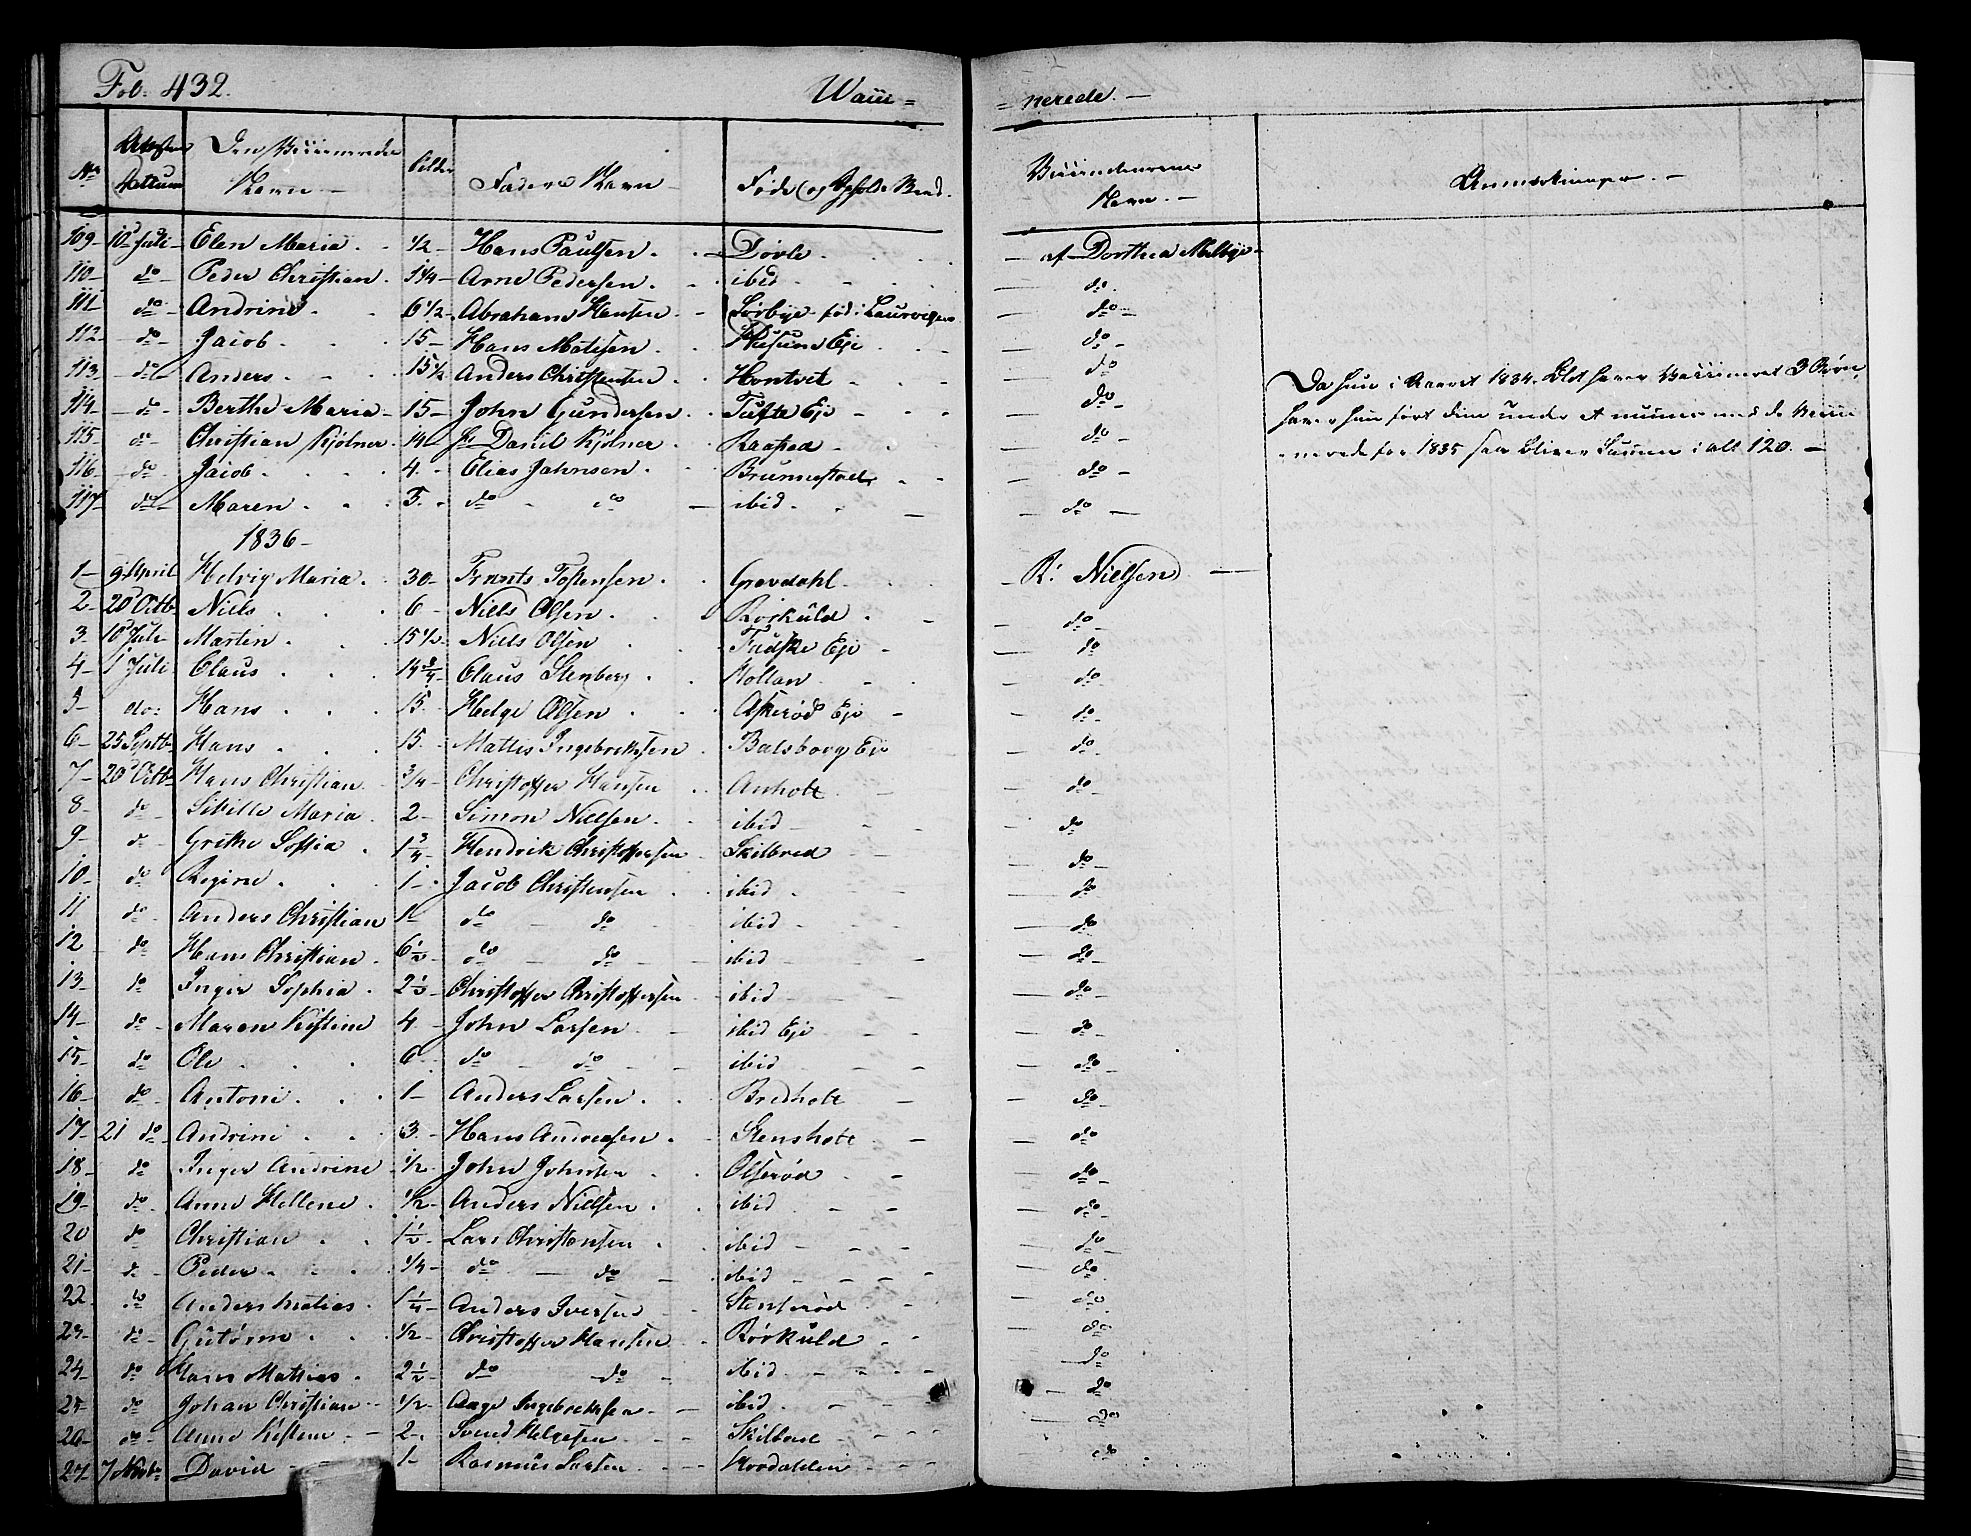 Fol: 432. Wacci= =nerede. —
No Attest Dattum Den Vaccineredes Navn — Alder Faders Navn — Føde og Opholds Sted. Vaccinateurens Navn. — Anmærkninger. —
109 10 Juli Elen Maria 1/2 Hans Paulsen Døvle af Dorthea Melbye
110 do Peder Christian 1 1/4 Arne Pedersen ibid do
111 do Andrine 6 1/2 Abraham Hansen Sørbye fød i Laurvigen do
112 do Jacob 15 Hans Matisen Eje do
113 do Anders 15 1/2 Anders Christensen Hontvet do
114 do Berthe Maria 15 John Gundersen Tufte Eje do
115 do Christian Kjølner 14 Daniel Kjølner Raasted do
116 do Jacob 4 Elias Jahnsen Brunnestad do
117 do Maren 5 do do ibid do
Da hun i Aaret 1834. blot haver Vaccineret 3 Børn,
haver hun ført dem under et numer med de Vacci
nerede for 1835 saa bliver Summen i alt 120. —
1836
1 9 April Helvig Maria 30 Frants Tostensen Grevdahl R: Nielsen
2 20 Octb Niels 6 Niels Olsen Rørkuld do
3 10 Juli Martin 15 1/2 Niels Olsen Fadske Eje do
4 1 Juli Claus 14 3/4 Claus Stenberg Hollan do
5 do: Hans 15 Helge Olsen Askerød Eje do
6 25 Septb Hans 15 Mattis Ingebrethsen Balsborg Eje do
7 20 Octb Hans Christian 3/4 Christoffer Hansen Anholt do
8 do Sibille Maria 2 Simon Nielsen ibid do
9 do Grethe Sofia 1 3/4 Hendrik Christoffersen Skilbred do
10 do Regine 1 Jacob Christensen ibid do
11 do Anders Christian 1 do do ibid do
12 do Hans Christian 6 1/2 do do ibid do
13 do Inger Sophia 2 1/2 Christoffer Christoffersen ibid do
14 do Maren Kistine 4 John Larsen ibid Eje do
15 do Ole 6 do do ibid do
16 do Antoni 1 Anders Larsen Bredholt do
17 21 do Andrine 3 Hans Andreasen Stensholt do
18 do Inger Andrine 1/2 John Johnsen Olserød do
19 do Anne Hellene 1/2 Anders Nielsen ibid do
20 do Christian 1 1/2 Lars Christensen ibid do
21 do Peder 1/4 do do ibid do
22 do Anders Matias 1 1/4 Anders Iversen Stenserød do
23 do Gutorm 1/2 Christoffer Hansen Rørkuld do
24 do Hans Mathias 2 1/2 do do ibid do
25 do Johan Christian 1/2 Aage Ingebrethsen ibid do
26 do Anne Kistine 2 Svend Helgesen Skilbred do
27 7 Novb David 1 Rasmus Larsen do